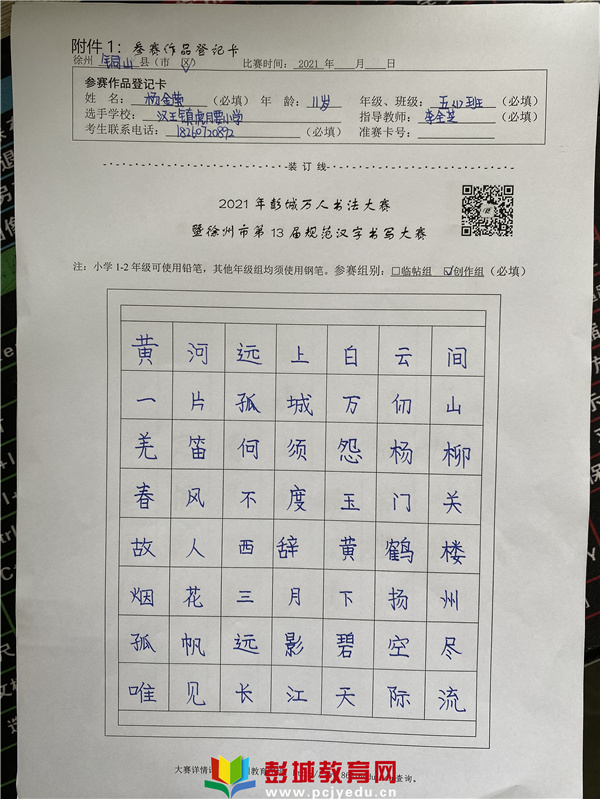 附件1：参赛作品登记卡
徐州 铜山 县（市 区） 比赛时间：2021 年 月 日
参赛作品登记卡
姓 名： 杨金萤 （必填） 年 龄： 11岁 年级、班级： 五(4)班 （必填）
选手学校： 汉王镇虎腰小学 指导教师： 李全芝 （必填）
考生联系电话： 18260720892 （必填） 准赛卡号：
装 订 线
2021 年彭城万人书法大赛
暨徐州市第 13 届规范汉字书写大赛
注：小学1-2 年级可使用铅笔，其他年级组均须使用钢笔。参赛组别：□临帖组 ☑创作组（必填）
黄河远上白云间
一片孤城万仞山
羌笛何须怨杨柳
春风不度玉门关
故人西辞黄鹤楼
烟花三月下扬州
孤帆远影碧空尽
唯见长江天际流
大赛详情 教育 查询。
彭城教育网
www.pcjyedu.cn